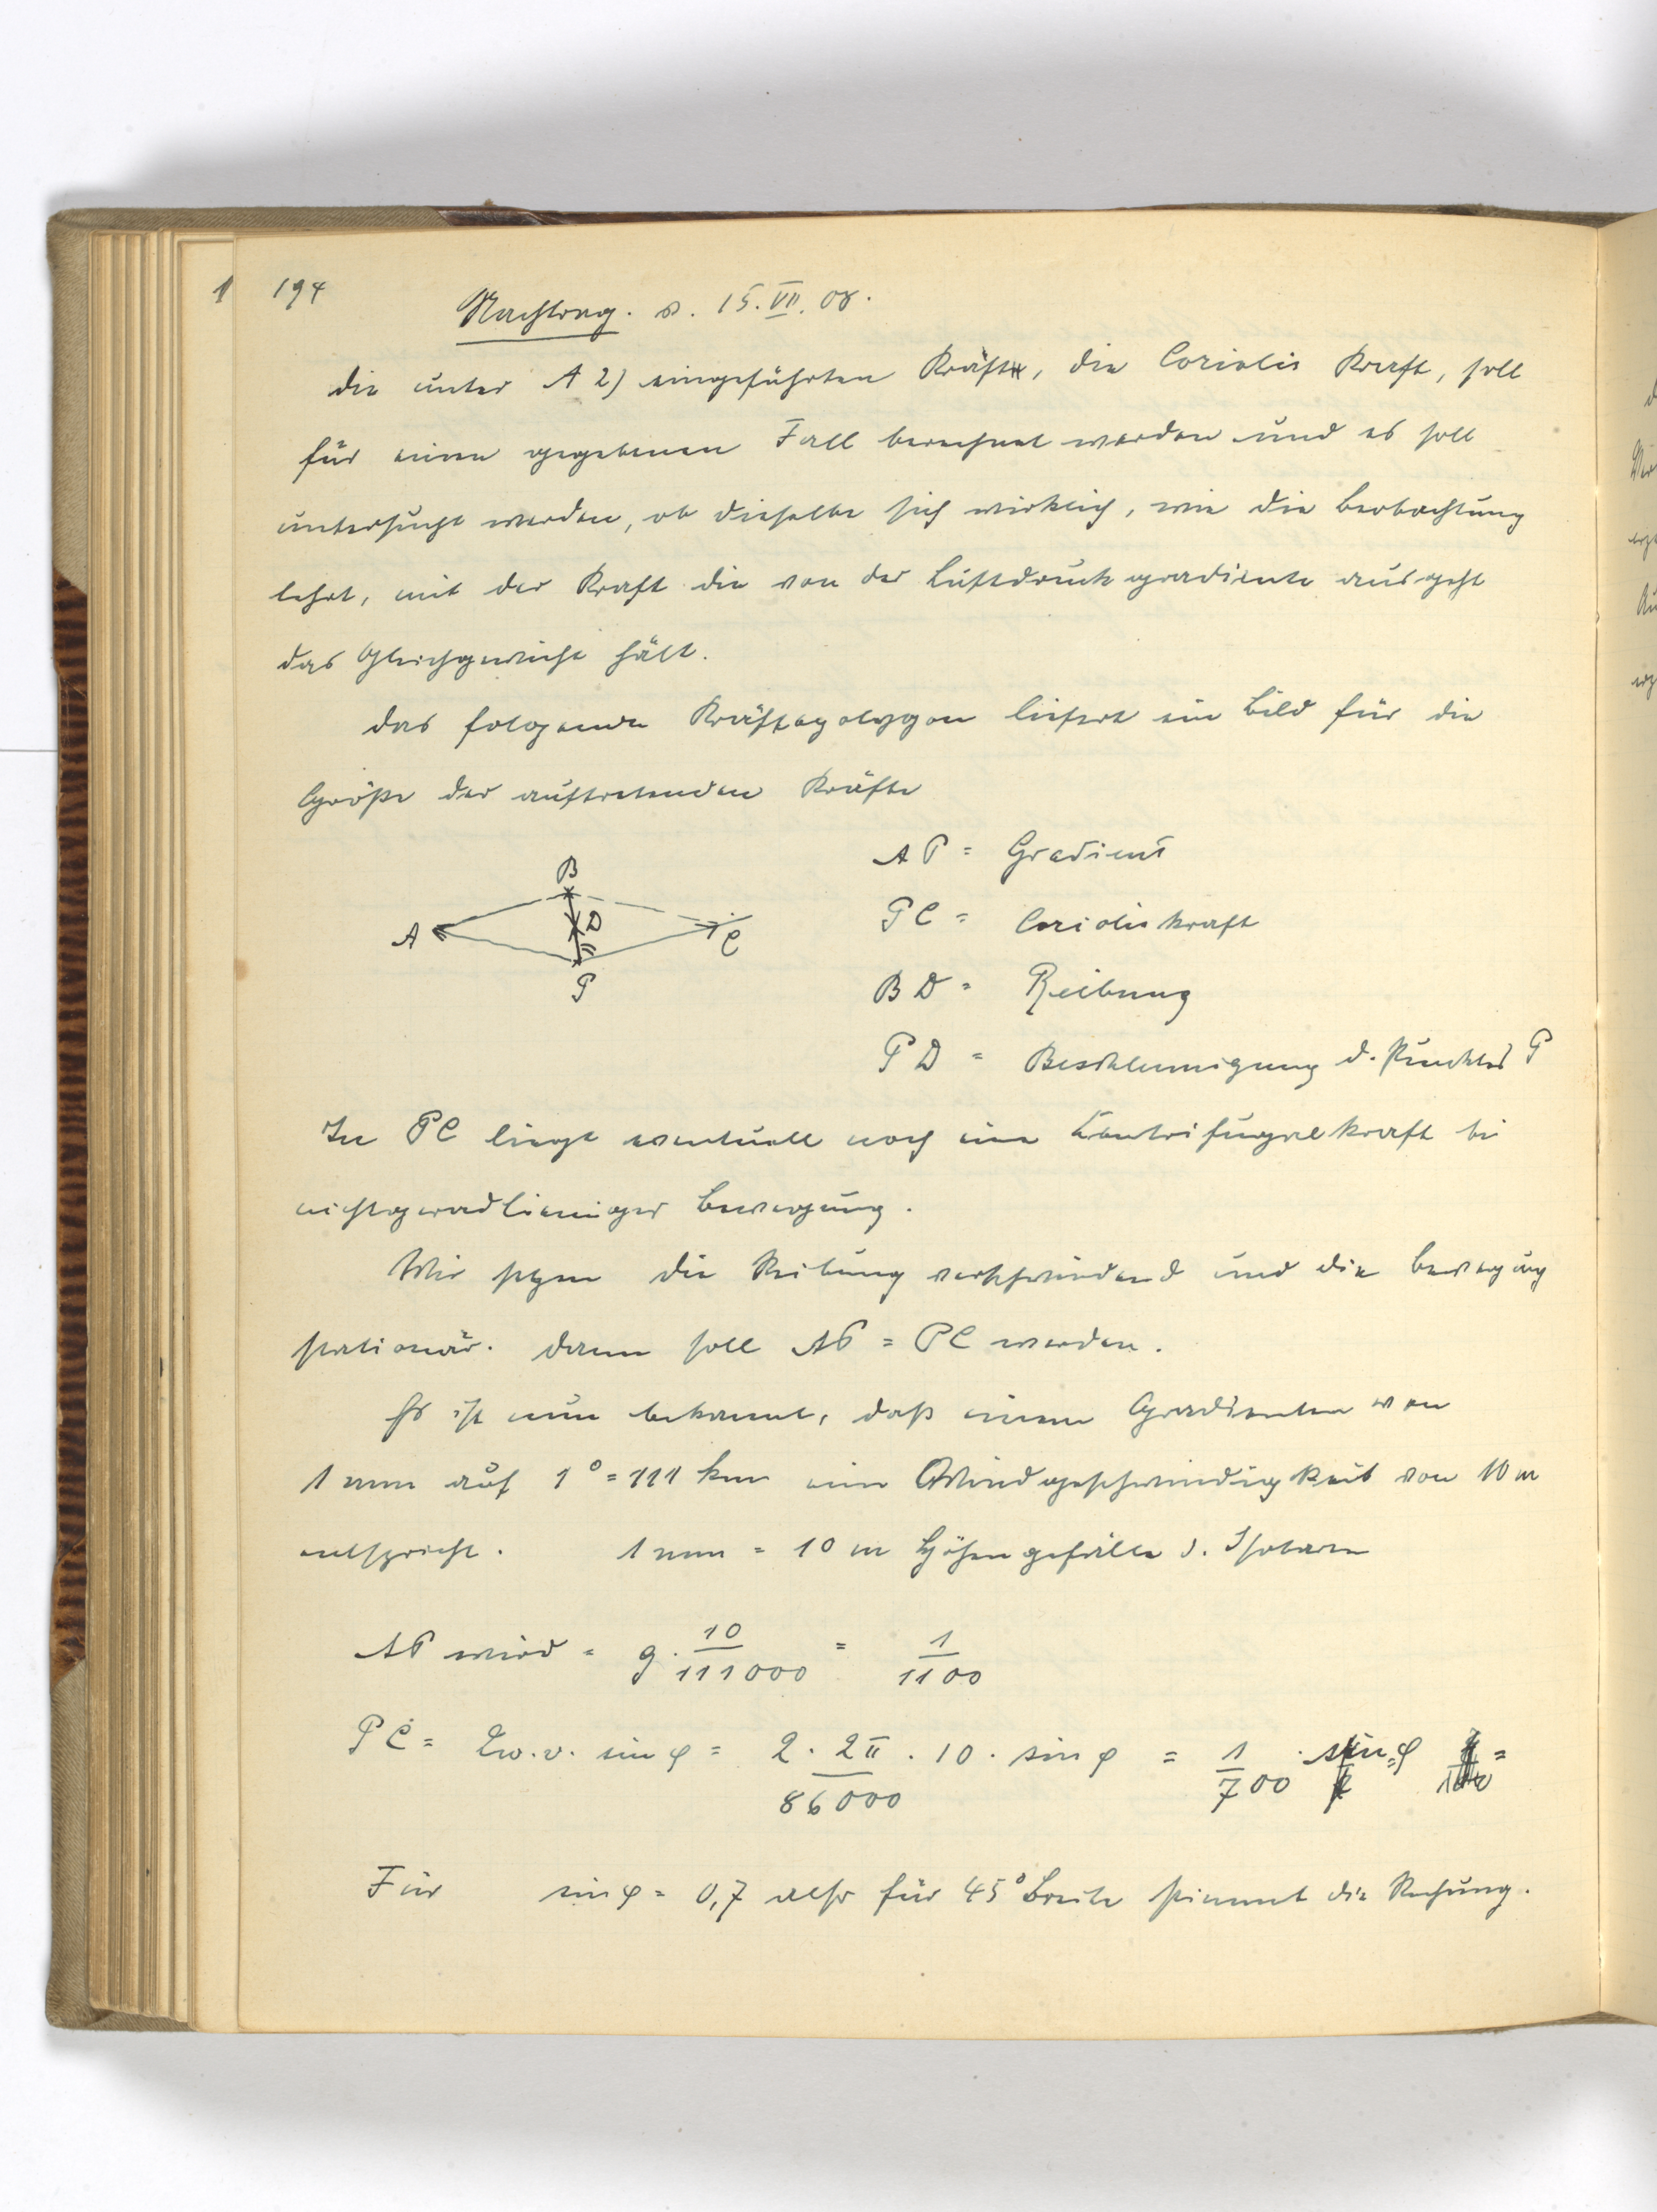 194
Nachtrag. v. 15.VII.08.
Die unter A 2) eingeführten Kraft, die Coriolis Kraft, soll
für einen gegebenen Fall berechnet werden und es soll
untersucht werden, ob dieselbe sich wirklich, wie die Beobachtung
lehrt, mit der Kraft die von der Luftdruckgradiente ausgeht
das Gleichgewicht hält.
Das folgende Kräftepolygon liefert ein Bild für die
Größe der auftretenden Kräfte
AP = Gradient
PC = Corioliskraft
BD = Reibung
PD = Beschleunigung d. Punktes P
B
D
A
C
P
In PC liegt eventuell noch eine Centrifugalkraft bei
nichtgeradlieniger Bewegung.
Wir setzen die Reibung verschwindend und die Bewegung
stationär. Dann soll AP = PC werden.
Es ist nun bekannt, daß einem Gradienten von
1 mm auf 1° = 111 km eine Windgeschwindigkeit von 10 m
entspricht. 1 mm = 10 m Höhengefälle d. Isobaren
AP wird = g · 10/111000 = 1/1100
PC = 2ω · v · sin φ = 2 · 2π/86000 · 10 · sin φ = 1/700 · sin φ =
Für sin φ = 0,7 also für 45° Breite stimmt die Rechnung.